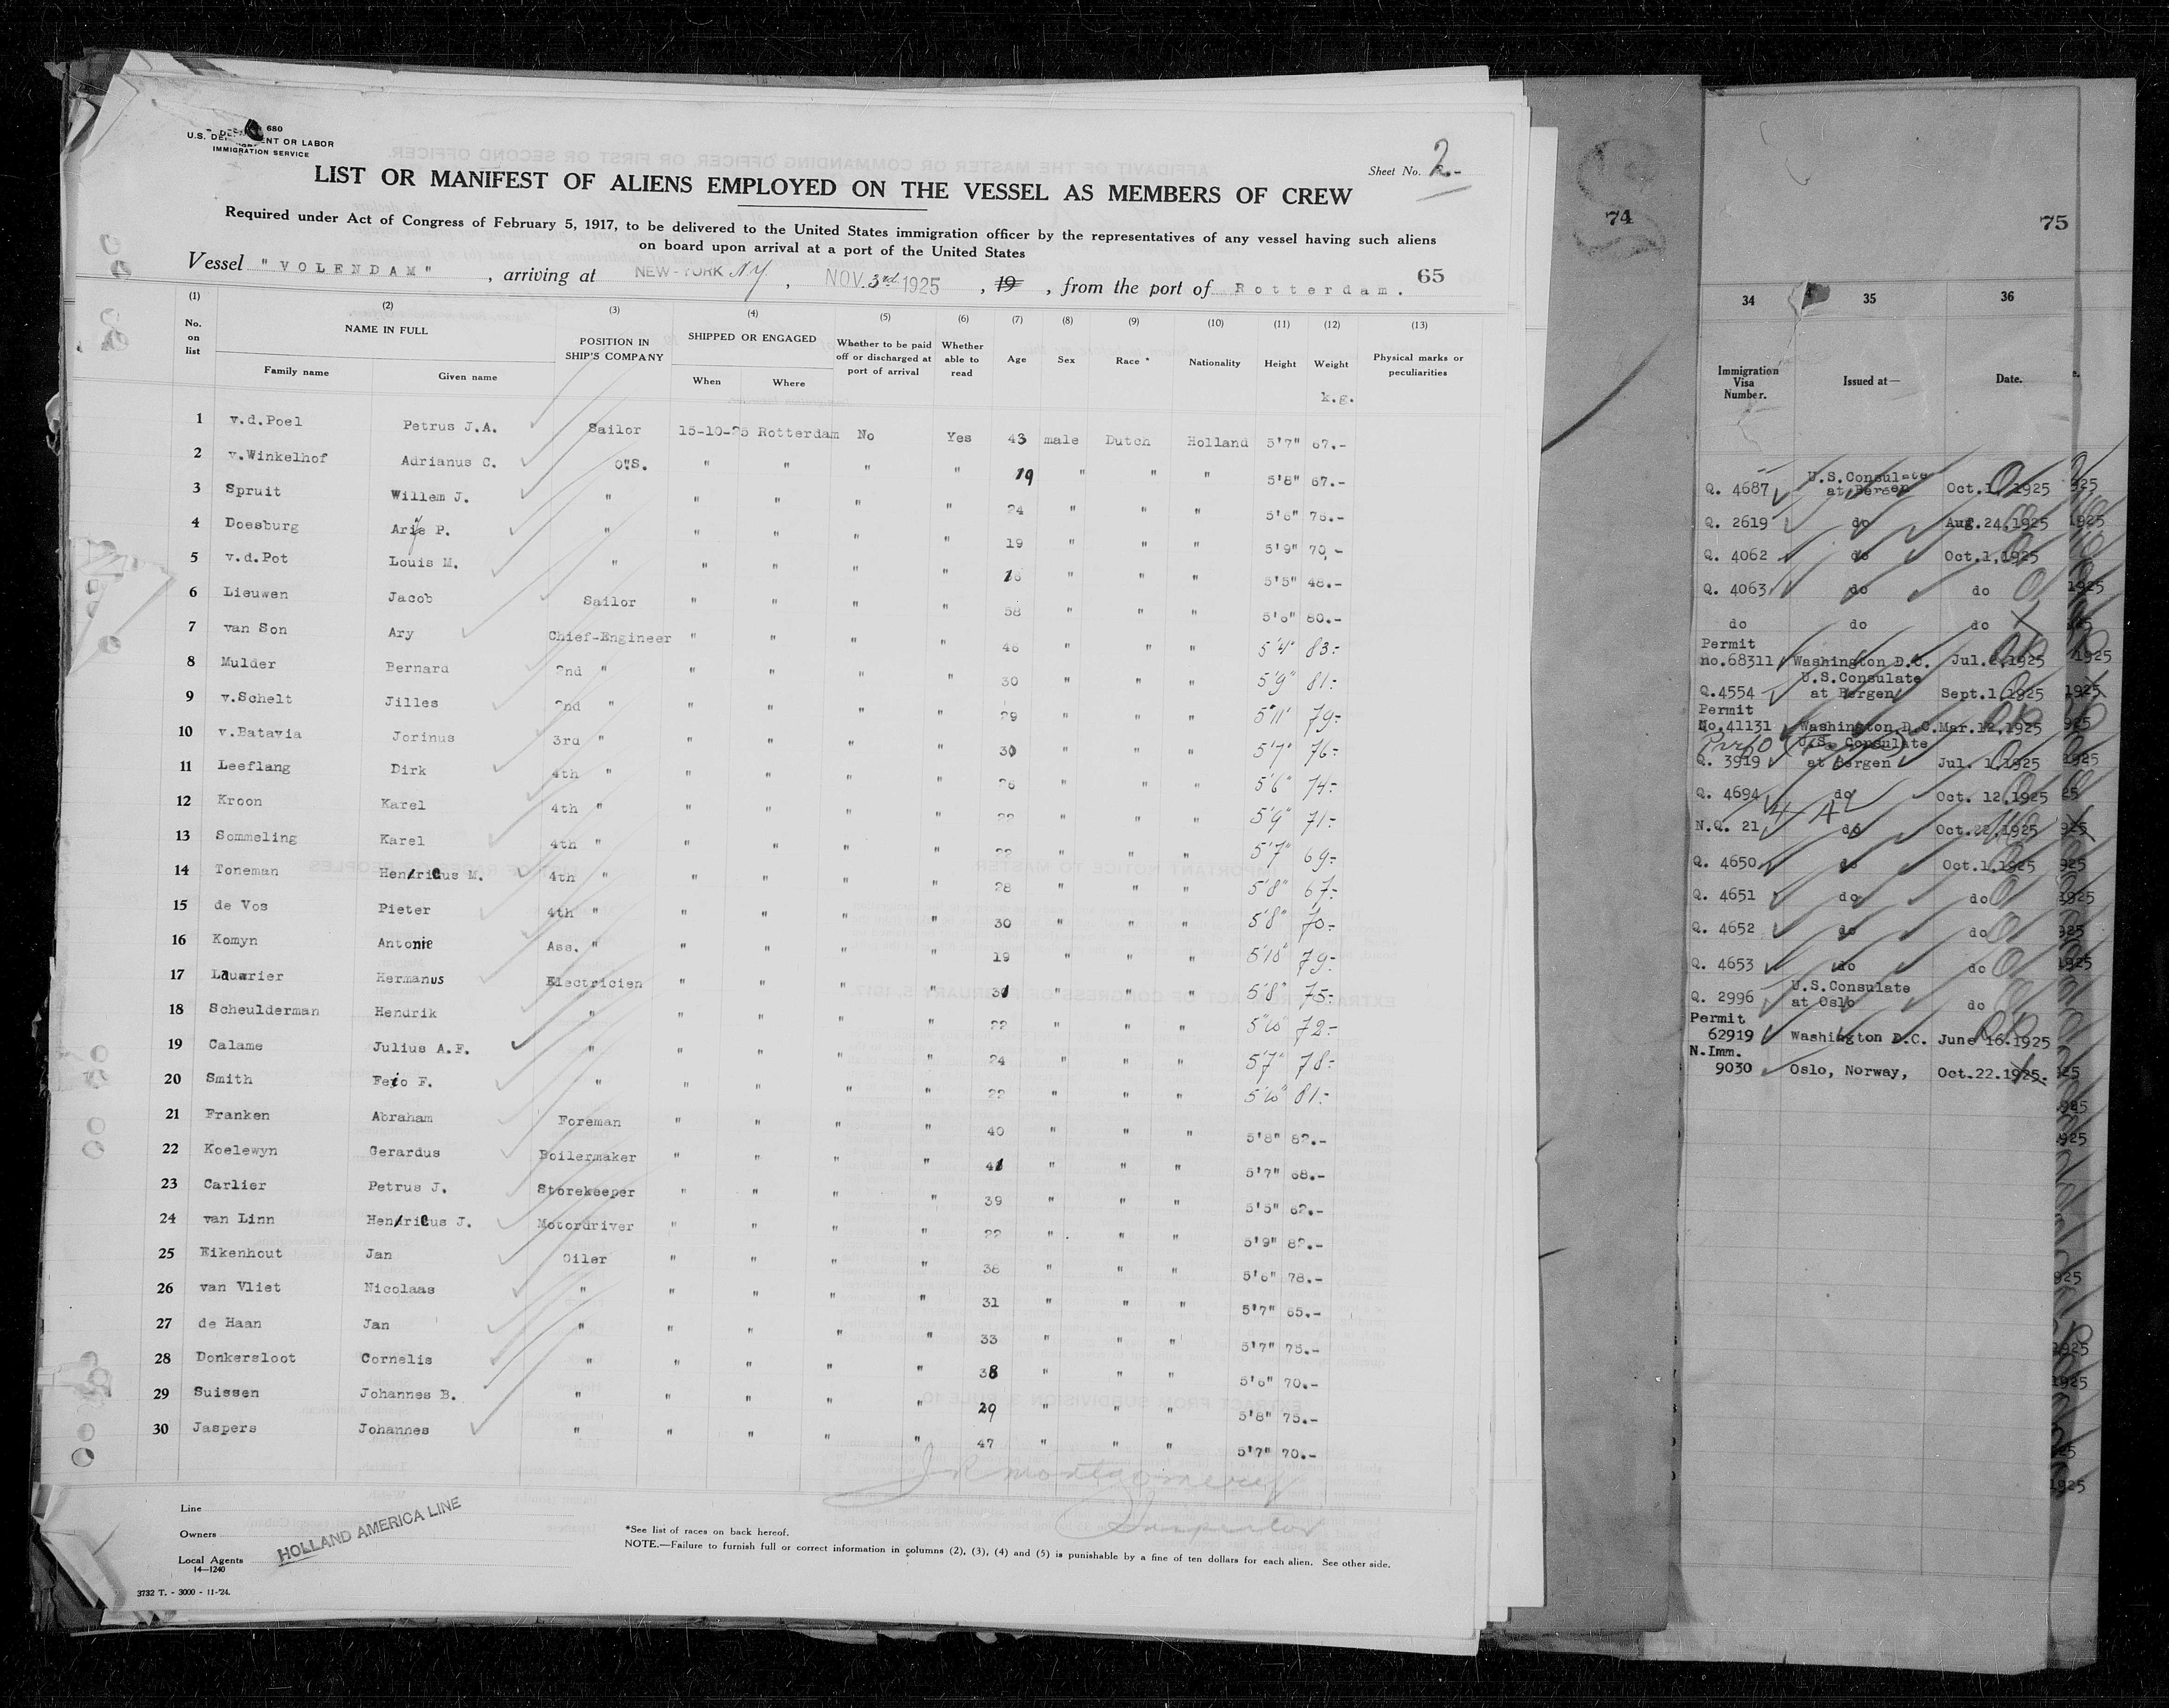 680
U.S. DEPARTMENT OR LABOR
IMMIGRATION SERVICE
Sheet No. 2.-
LIST OR MANIFEST OF ALIENS EMPLOYED ON THE VESSEL AS MEMBERS OF CREW
Required under Act of Congress of February 5, 1917, to be delivered to the United States immigration officer by the representatives of any vessel having such aliens
on board upon arrival at a port of the United States
Vessel "VOLENDAM", arriving at NEW-YORK NY, NOV. 3rd 1925, 19, from the port of Rotterdam. 65
(1) (2) (3) (4) (5) (6) (7) (8) (9) (10) (11) (12) (13)
No. on list NAME IN FULL POSITION IN SHIP'S COMPANY SHIPPED OR ENGAGED Whether to be paid off or discharged at port of arrival Whether able to read Age Sex Race * Nationality Height Weight Physical marks or peculiarities
Family name Given name When Where k.g.
1 v.d.Poel Petrus J.A. Sailor 15-10-25 Rotterdam No Yes 43 male Dutch Holland 5'7" 67.-
2 v.Winkelhof Adrianus C. O.S. " " " " 19 " " " 5'8" 67.-
3 Spruit Willem J. " " " " " 24 " " " 5'6" 75.-
4 Doesburg Arie P. " " " " " 19 " " " 5'9" 70.-
5 v.d.Pot Louis M. " " " " " 18 " " " 5'5" 48.-
6 Lieuwen Jacob Sailor " " " " 58 " " " 5'6" 80.-
7 van Son Ary Chief-Engineer " " " " 46 " " " 5'4" 83.-
8 Mulder Bernard 2nd " " " " " 30 " " " 5'9" 81.-
9 v.Schelt Jilles 2nd " " " " " 29 " " " 5'11" 79.-
10 v.Batavia Jorinus 3rd " " " " " 30 " " " 5'7" 76.-
11 Leeflang Dirk 4th " " " " " 26 " " " 5'6" 74.-
12 Kroon Karel 4th " " " " " 22 " " " 5'9" 71.-
13 Sommeling Karel 4th " " " " " 22 " " " 5'7" 69.-
14 Toneman Henricus M. 4th " " " " " 28 " " " 5'8" 67.-
15 de Vos Pieter 4th " " " " " 30 " " " 5'8" 70.-
16 Komyn Antonie Ass. " " " " " 19 " " " 5'10" 79.-
17 Laurier Hermanus Electricien " " " " 31 " " " 5'8" 75.-
18 Scheulderman Hendrik " " " " " 22 " " " 5'10" 72.-
19 Calame Julius A.F. " " " " " 24 " " " 5'7" 78.-
20 Smith Feio F. " " " " " 22 " " " 5'10" 81.-
21 Franken Abraham Foreman " " " " 40 " " " 5'8" 82.-
22 Koelewyn Gerardus Boilermaker " " " " 41 " " " 5'7" 68.-
23 Carlier Petrus J. Storekeeper " " " " 39 " " " 5'5" 62.-
24 van Linn Henricus J. Motordriver " " " " 22 " " " 5'9" 82.-
25 Eikenhout Jan Oiler " " " " 36 " " " 5'6" 78.-
26 van Vliet Nicolaas " " " " " 31 " " " 5'7" 65.-
27 de Haan Jan " " " " " 33 " " " 5'7" 75.-
28 Donkersloot Cornelis " " " " " 38 " " " 5'6" 70.-
29 Suissen Johannes B. " " " " " 29 " " " 5'8" 75.-
30 Jaspers Johannes " " " " " 47 " " " 5'7" 70.-
J R Montgomery
Inspector
Line
Owners
Local Agents
HOLLAND AMERICA LINE
14—1240
*See list of races on back hereof.
NOTE.—Failure to furnish full or correct information in columns (2), (3), (4) and (5) is punishable by a fine of ten dollars for each alien. See other side.
3732 T. - 3000 - 11-'24.
74
75
34 35 36
Immigration Visa Number. Issued at— Date.
Q. 4687 U.S.Consulate at Bergen Oct.1,1925
Q. 2619 do Aug.24,1925
Q. 4062 do Oct.1,1925
Q. 4063 do do
do do do
Permit no.68311 Washington D.C. Jul. 1925
Q.4554 U.S.Consulate at Bergen Sept.1,1925
Permit No.41131 Washington D.C. Mar.12,1925
Q. 3919 U.S. Consulate at Bergen Jul. 1,1925
Q. 4694 do Oct. 12,1925
N.Q. 21 do Oct.22,1925
Q. 4650 do Oct.1,1925
Q. 4651 do do
Q. 4652 do do
Q. 4653 do do
Q. 2996 U.S.Consulate at Oslo do
Permit 62919 Washington D.C. June 16.1925
N.Imm. 9030 Oslo, Norway, Oct.22.1925.